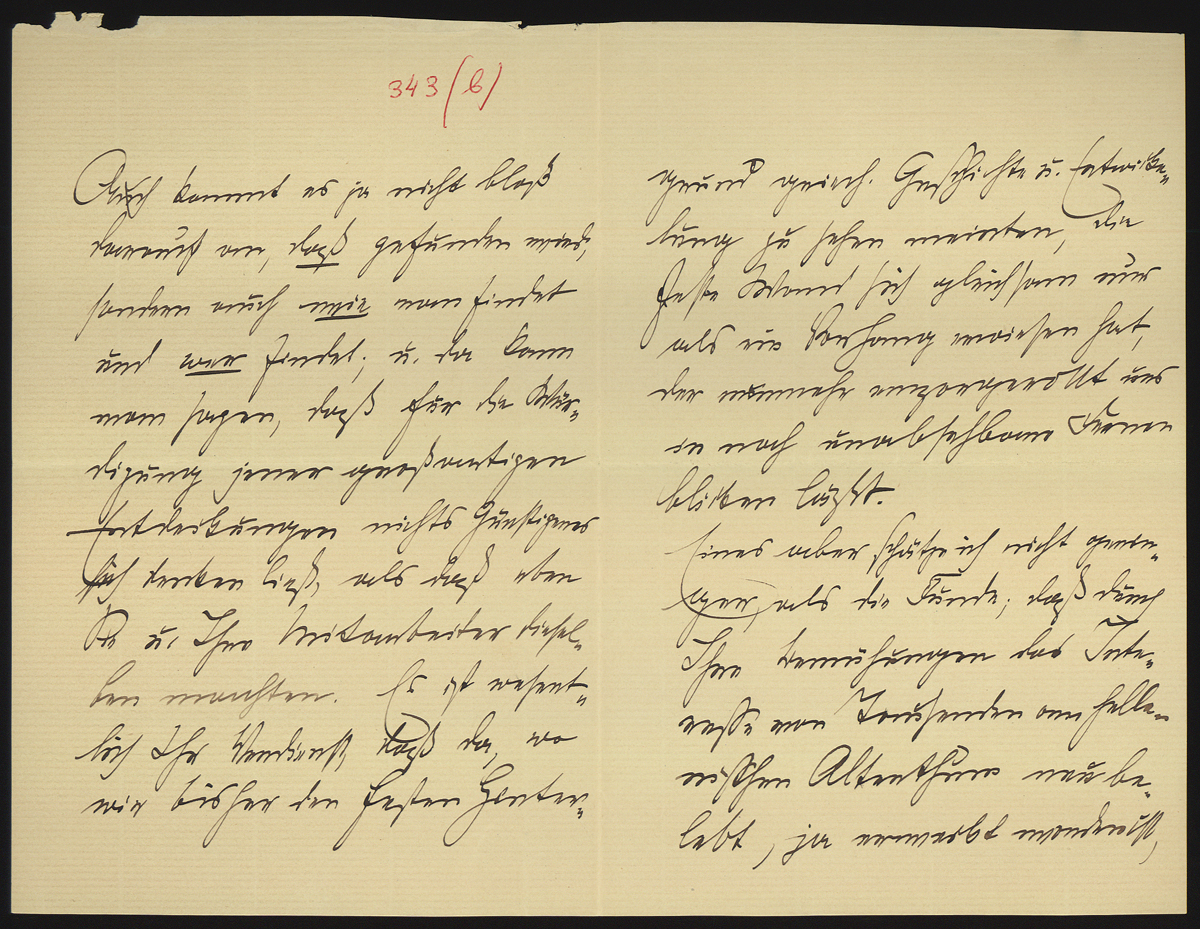 343 (b)
Auch kommt es ja nicht bloß
darauf an, daß gefunden wird,
sondern auch wie man findet
und wer findet; u. da kann
man sagen, daß für die Wür-
digung jener großartigen
Entdeckungen nichts Günstigeres
sich denken ließ, als daß eben
Sie u. Ihre Mitarbeiter diesel-
ben machten. Es ist wesent-
lich Ihr Verdienst, daß da, wo
wir bisher den festen Hinter-
grund griech. Geschichte u. Entwicke-
lung zu sehen meinten, die
feste Wand sich gleichsam nur
als ein Vorhang erwiesen hat,
der nunmehr emporgerollt uns
in noch unabsehbare Fernen
blicken läßt.
Eines aber schätze ich nicht gerin-
ger, als die Funde; daß durch
Ihre Bemühungen das Inte-
resse von Tausenden am helle-
nischen Alterthum neu be-
lebt, ja erweckt worden ist,